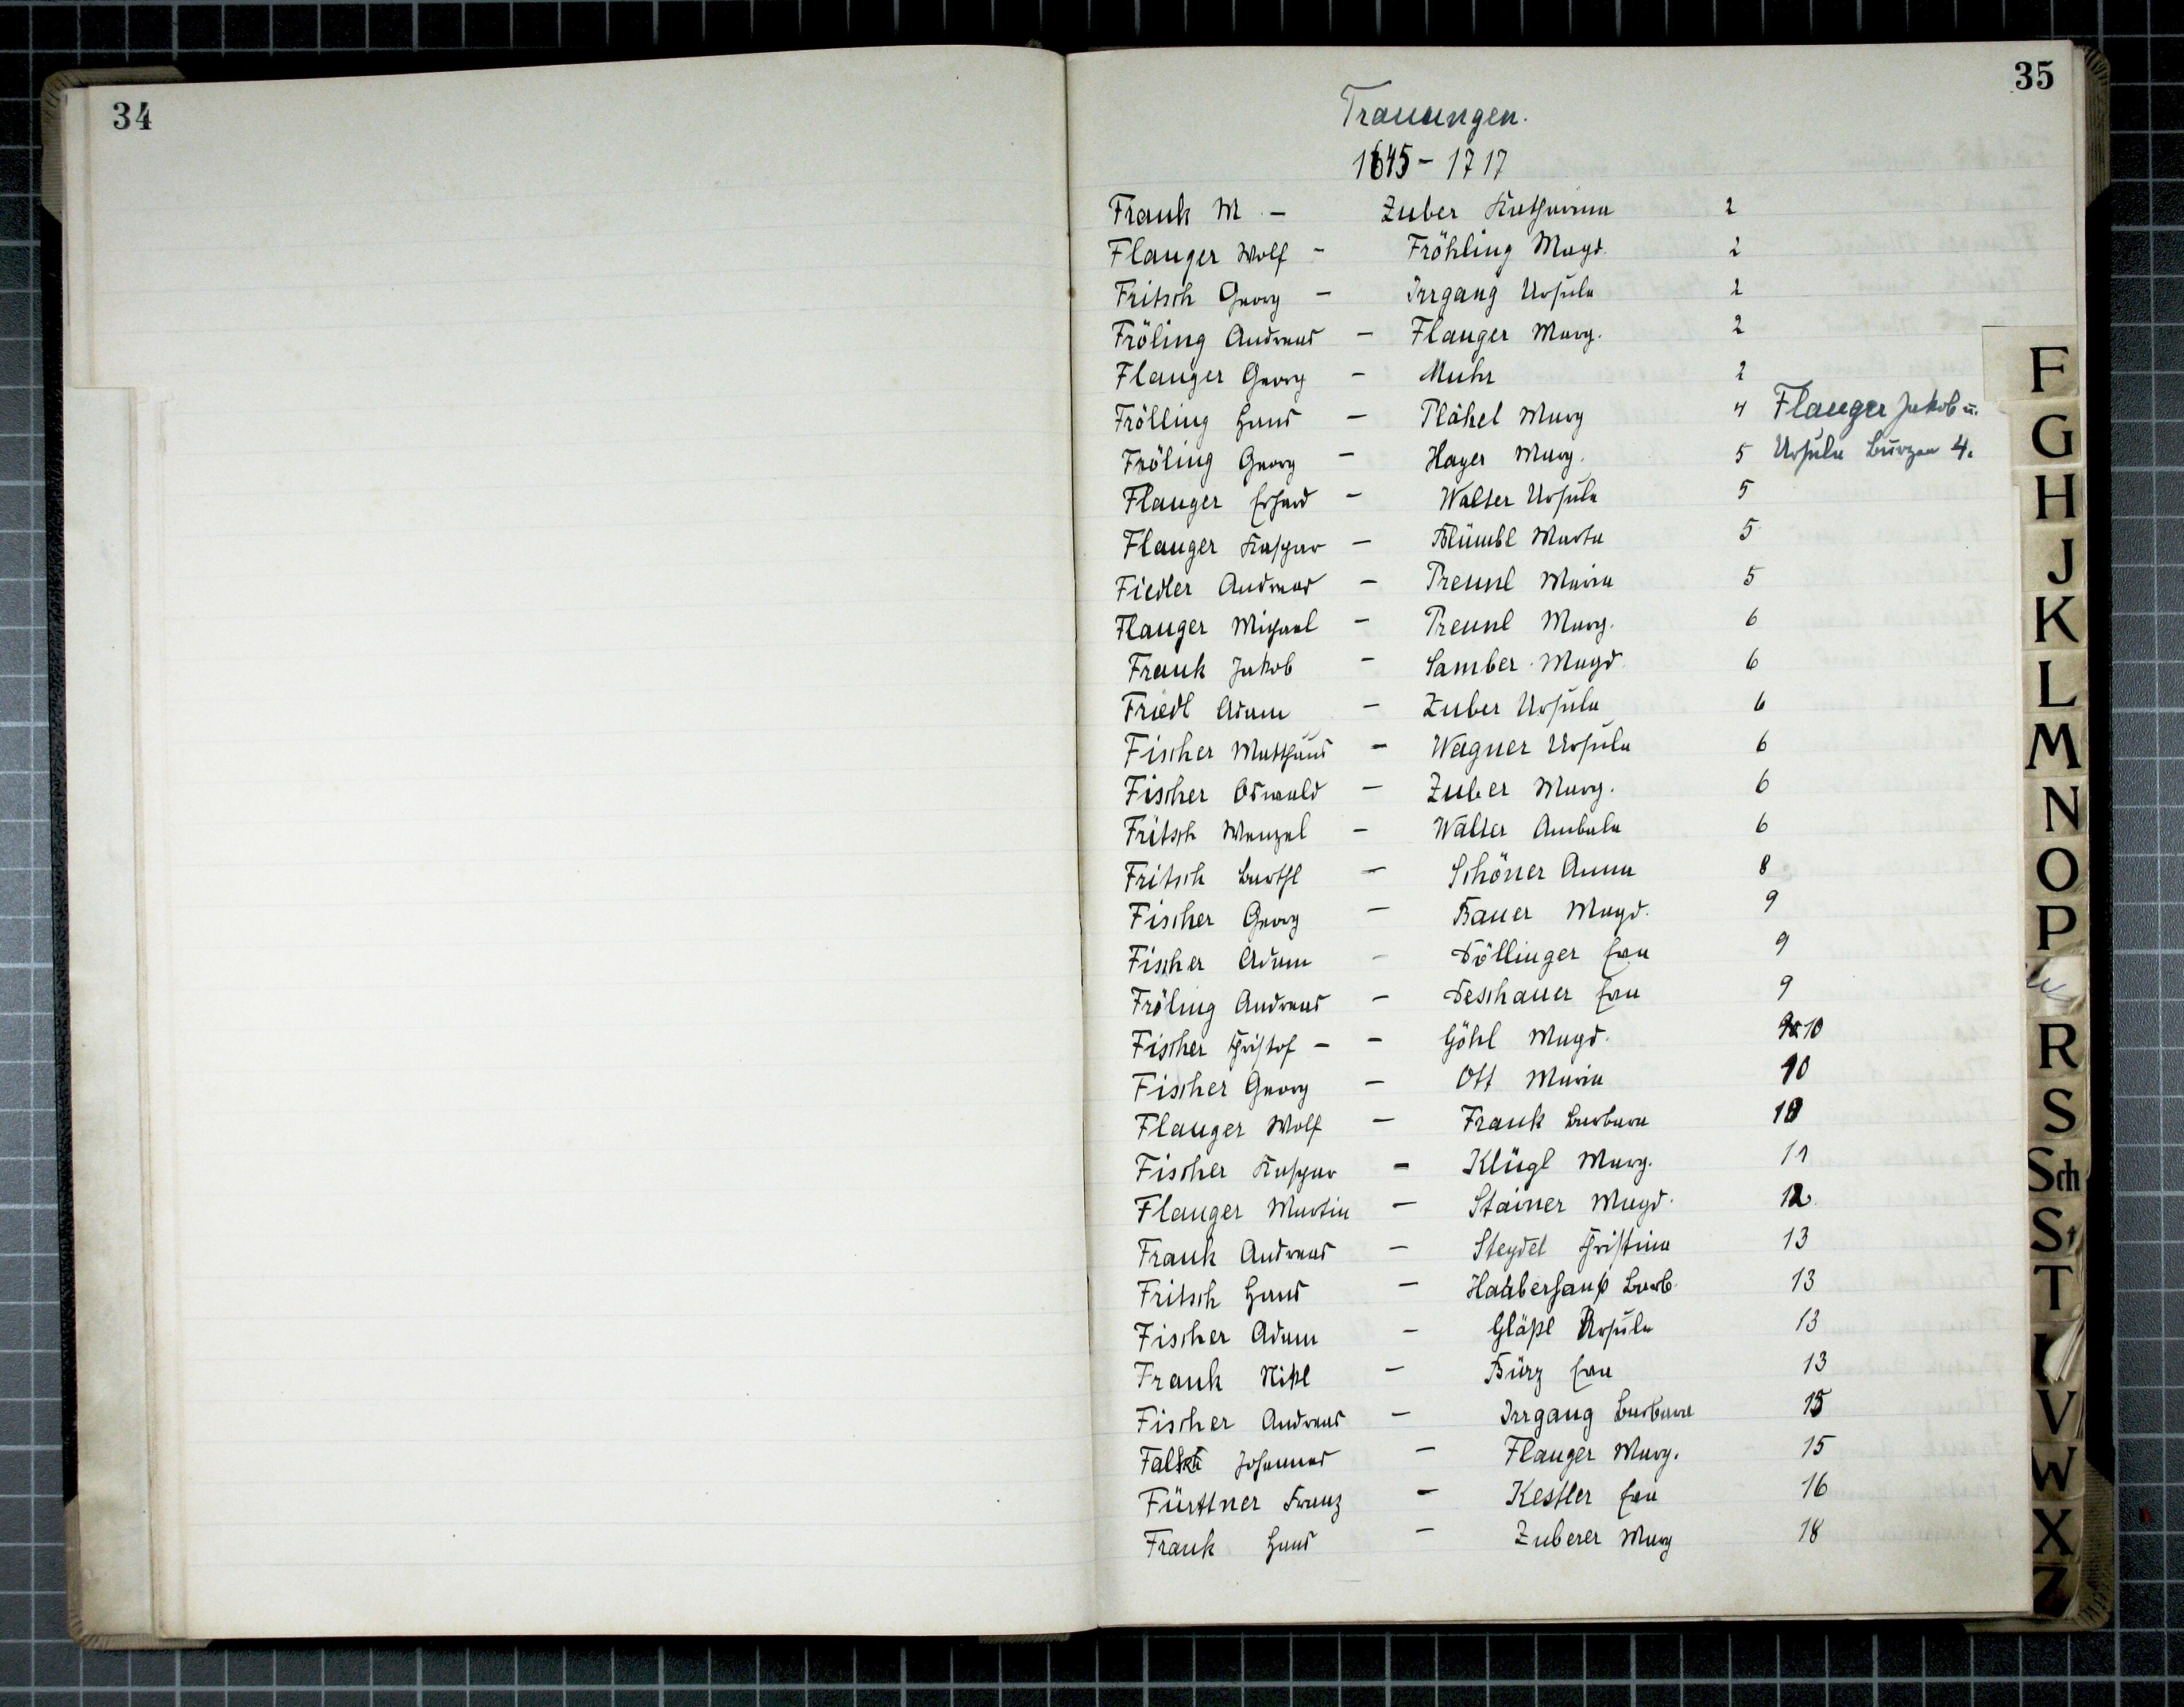 34
35
Trauungen.
1645 - 1717
Frank M. - Zuber Katharina 2
Flauger Wolf - Fröhling Magd. 2
Fritsch Georg - Irrgang Ursula 2
Fröling Andreas - Flauger Marg. 2
Flauger Georg - Muhr 2
Frölling Hans - Plähel Marg 4 Flauger Jakob u.
Fröling Georg - Hayer Marg. 5 Ursula 4.
Flauger Erhard - Walter Ursula 5
Flauger Kaspar - Blümbl Marta 5
Fiedler Andreas - Preunl Maria 5
Flauger Michael - Preunl Marg. 6
Frank Jakob - Samber Magd. 6
Friedl Adam - Zuber Ursula 6
Fischer Matthäus - Wagner Ursula 6
Fischer Oswald - Zuber Marg. 6
Fritsch Wenzel - Walter 6
Fritsch Barthl - Schöner Anna 8
Fischer Georg - Bauer Magd. 9
Fischer Adam - Döllinger Eva 9
Fröling Andreas - Deschauer Eva 9
Fischer Christof - - Göhl Magd. 10
Fischer Georg - Ott Maria 10
Flauger Wolf - Frank Barbara 10
Fischer Kaspar - Klügl Marg. 11
Flauger Martin - Stainer Magd. 12
Frank Andreas - Steydel Christina 13
Fritsch Hans - Barb. 13
Fischer Adam - Gläßl Ursula 13
Frank Nikl - Bürz Eva 13
Fischer Andreas - Irrgang Barbara 15
Johannes - Flauger Marg. 15
Fürttner Franz - Kestler Eva 16
Frank Hans - Zuberer Marg 18
F
G
H
J
K
L
M
N
O
P
R
S
Sch
St
T
V
W
X
Z